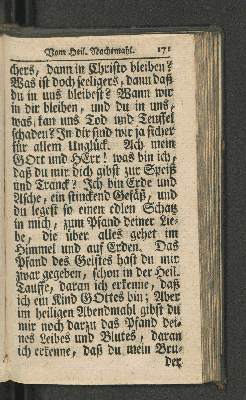 Vom Heil. Nachtmahl. 171
chers, dann in Christo bleiben?
Was ist doch seeligers, dann daß
du in uns bleibest? Wann wir
in dir bleiben, und du in uns,
was kan uns Tod und Teuffel
schaden? In dir sind wir ja sicher
für allem Unglück. Ach mein
GOtt und HErr! was bin ich,
daß du mir dich gibst zur Speiß
und Tranck? Ich bin Erde und
Asche, ein stinckend Gefäß, und
du legest so einen edlen Schatz
in mich, zum Pfand deiner Lie-
be, die über alles gehet im
Himmel und auf Erden. Das
Pfand des Geistes hast du mir
zwar gegeben, schon in der Heil.
Tauffe, daran ich erkenne, daß
ich ein Kind GOttes bin; Aber
im heiligen Abendmahl gibst du
mir noch darzu das Pfand dei-
nes Leibes und Blutes, daran
ich erkenne, daß du mein Bru-
der